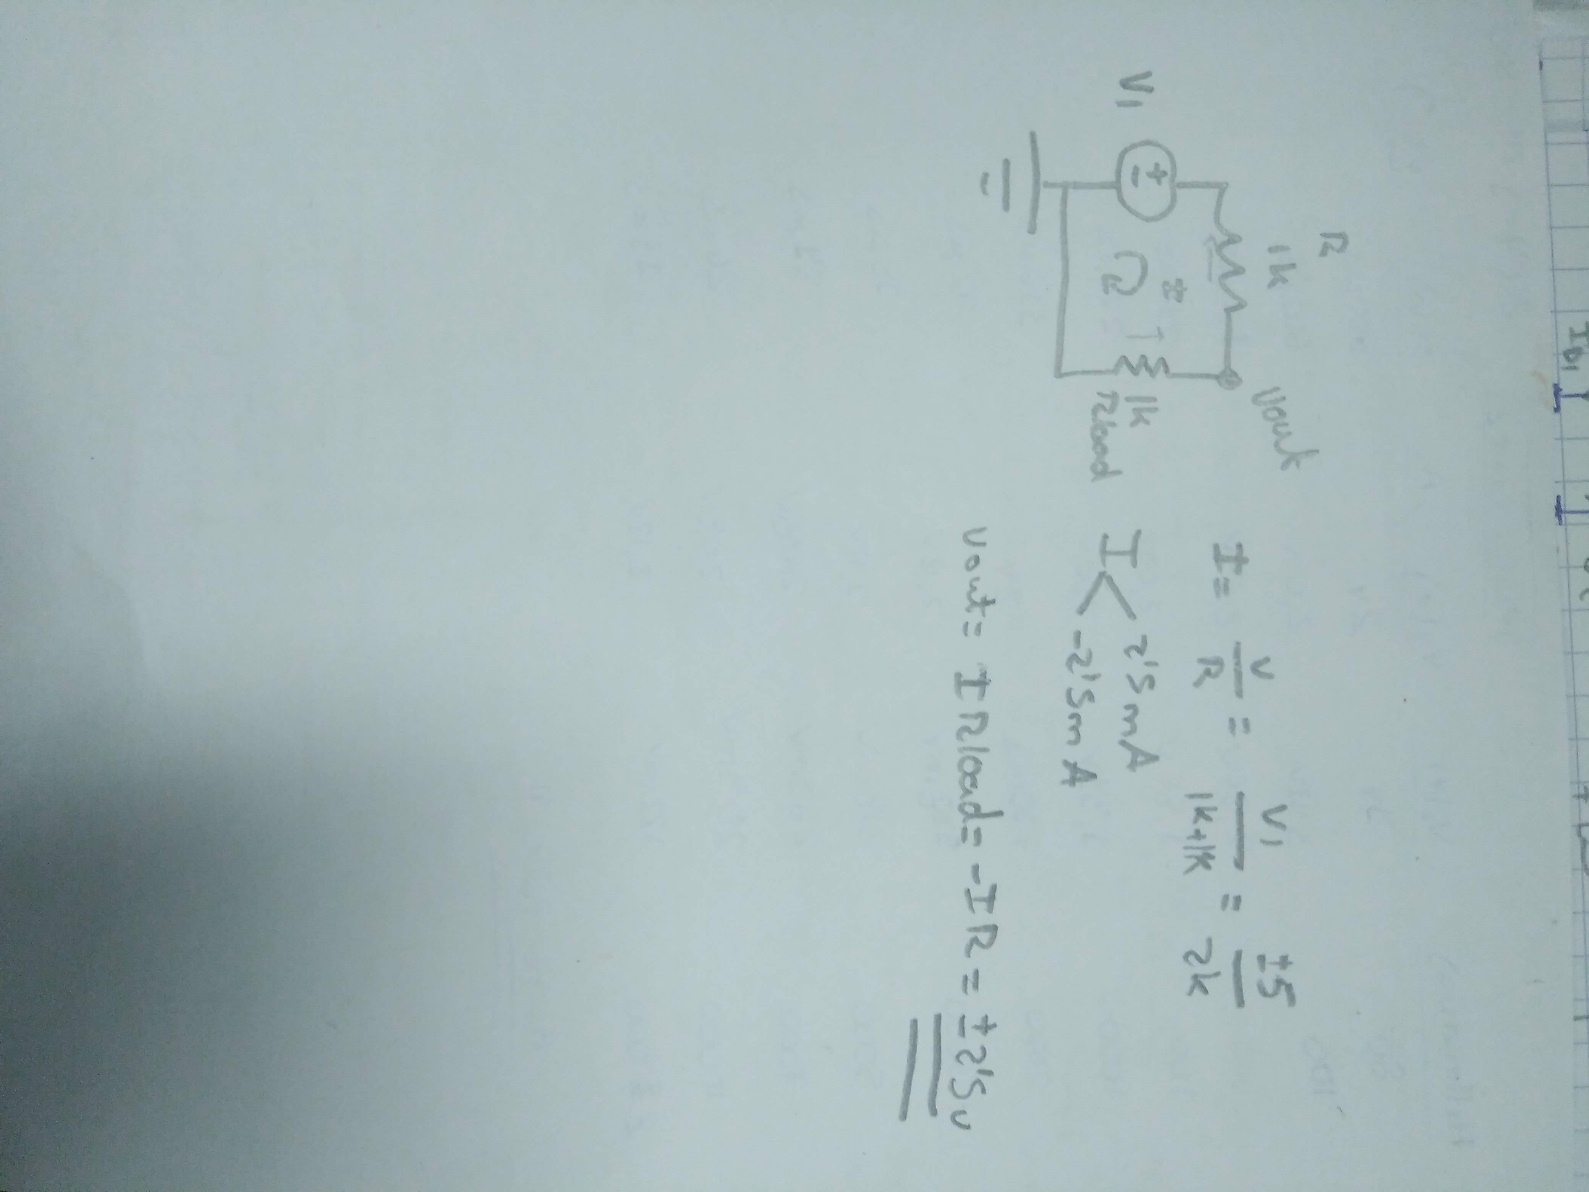 R
1k
Vout
V1
I
1k
Rload
I = V/R = V1/1k+1k = ±5/2k
I < 2'5mA
-2'5mA
Vout = I Rload = -IR = ±2'5v
ID1